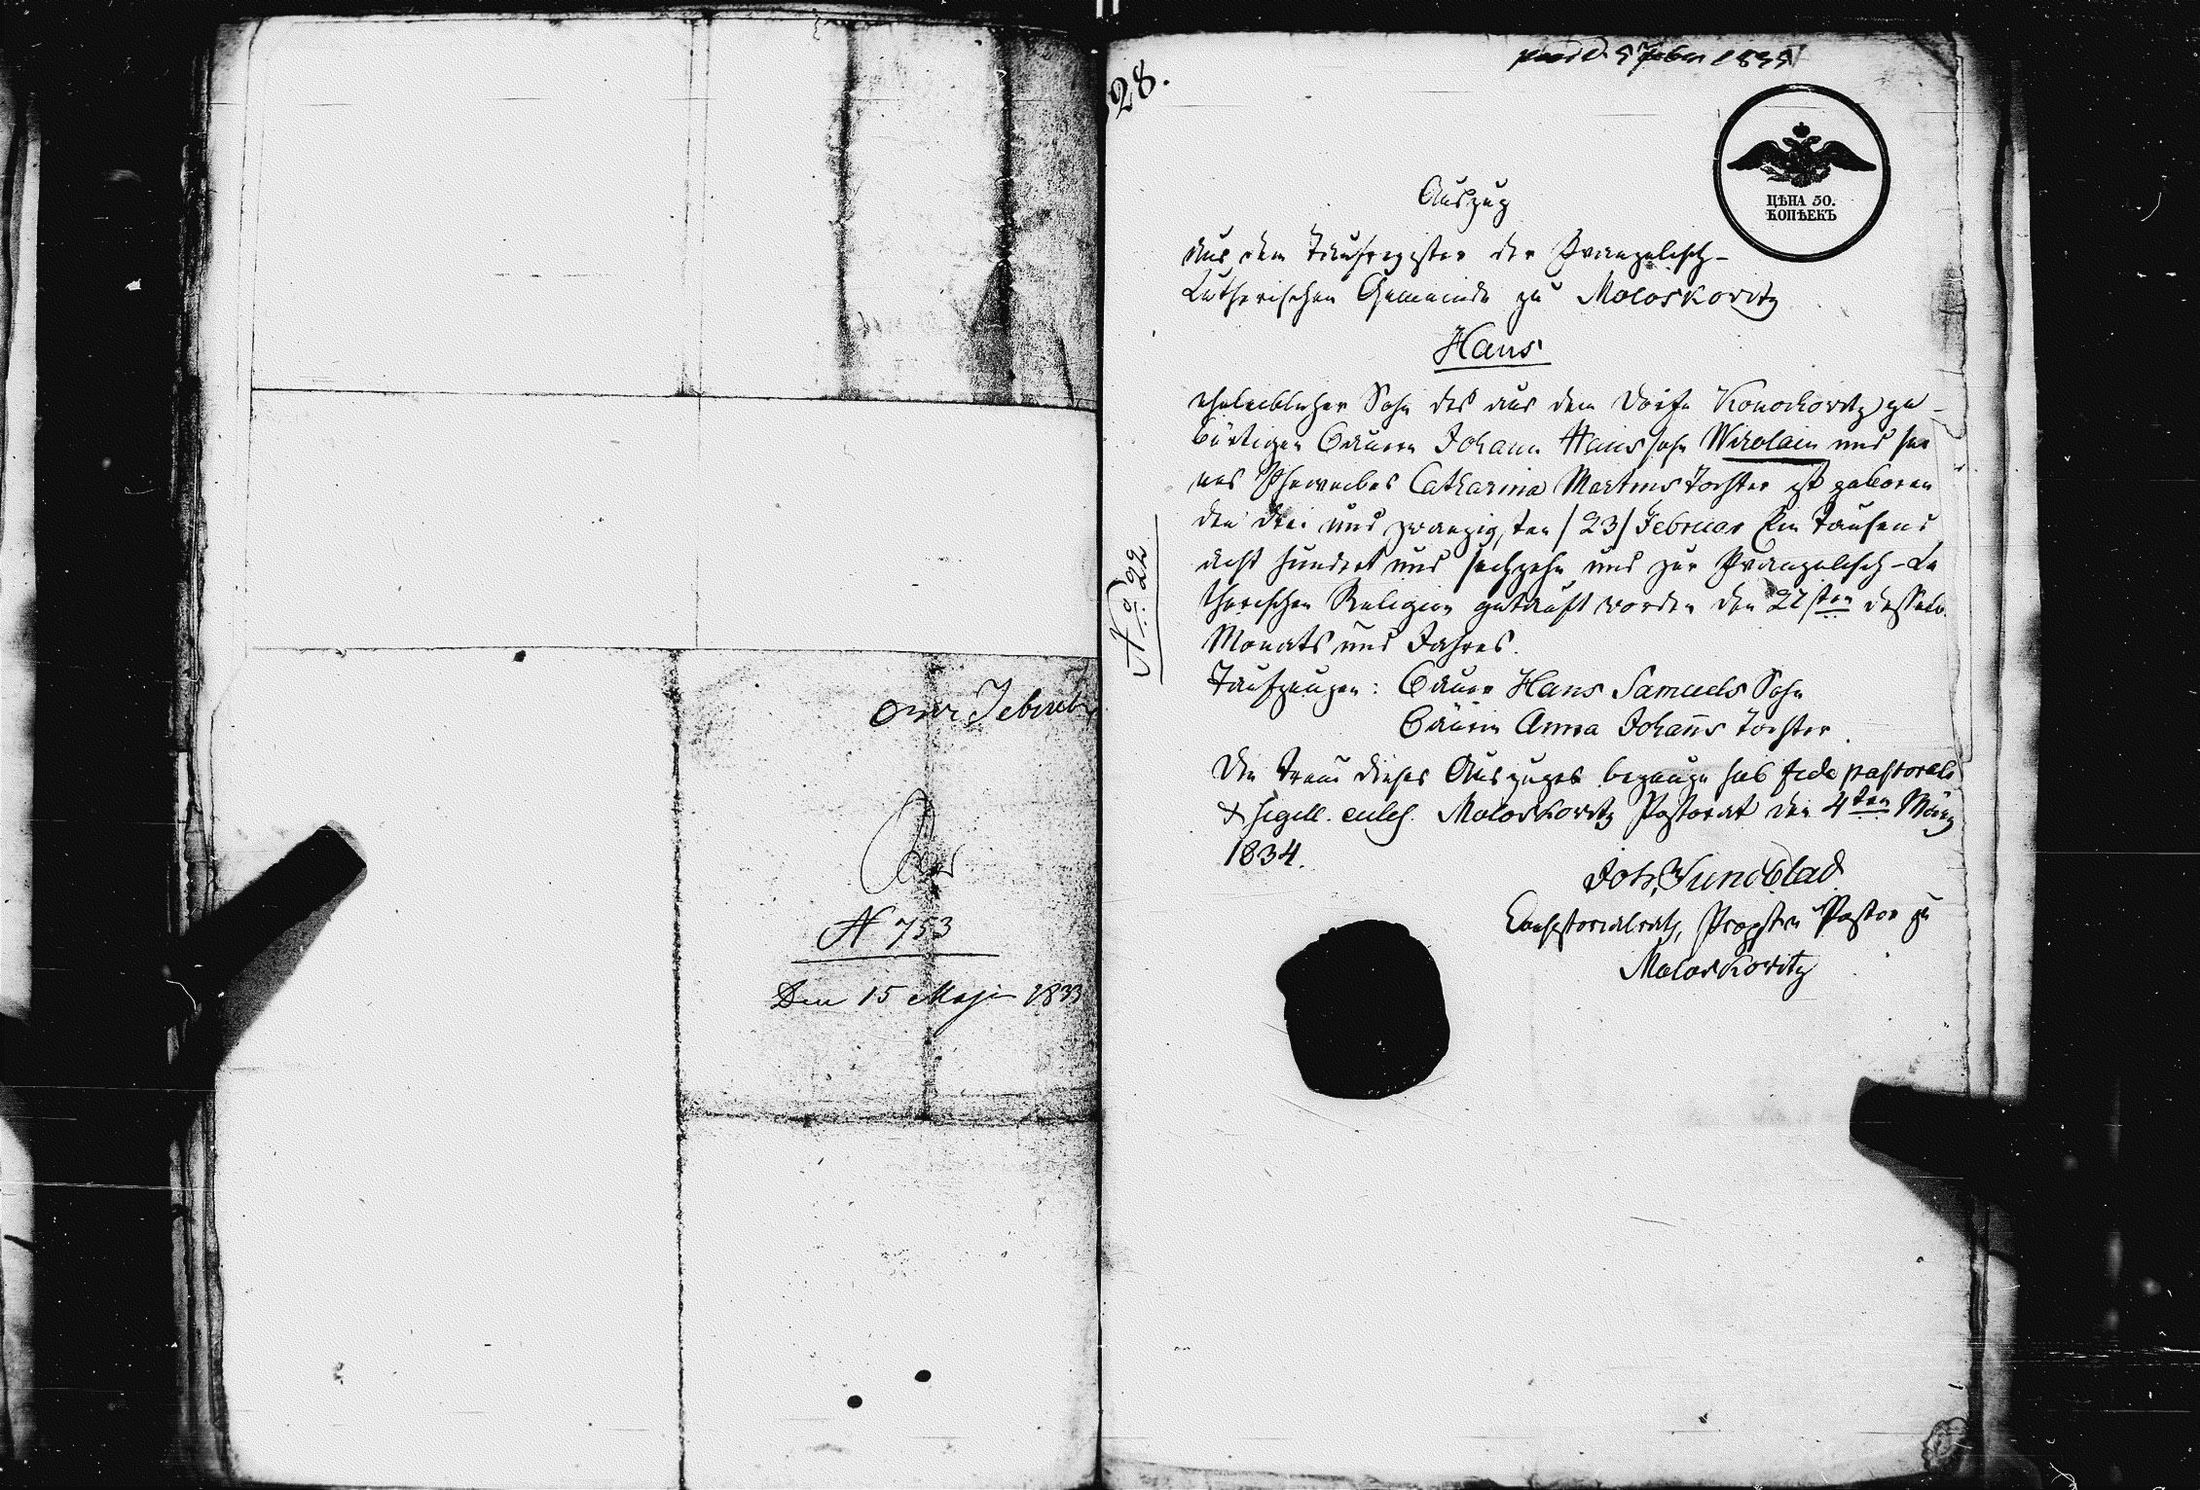 N 753
Den 15 Maji 1833
28.
ЦѢНА 50.
КОПѢЕКЪ
Auszug
aus dem Taufregister der Evangelisch-
Lutherischen Gemeinde zu Moloskovitz
Hans
eheleiblicher Sohn des aus dem Dorfe Konochovitz ge-
bürtigen Bauern Johann Hans Sohn Wirolain und sei
nes Eheweibes Catharina Martins Tochter ist geboren
den drei und zwanzigsten /23/ Februar Ein Tausend
acht hundert und sechzehn und zur Evangelisch-Lu
therischen Religion getauft worden den 27sten desselb.
Monats und Jahres.
Taufzeugen: Bauer Hans Samuels Sohn
Bäurin Anna Johanns Tochter.
Die Treue dieses Auszuges bezeuge sub fide pastorali
& sigill. eccles. Moloskovitz Pastorat den 4ten März
1834.
Joh. Sundblad
Consistorialrath, Propst u Pastor zu
Moloskovitz
No 22